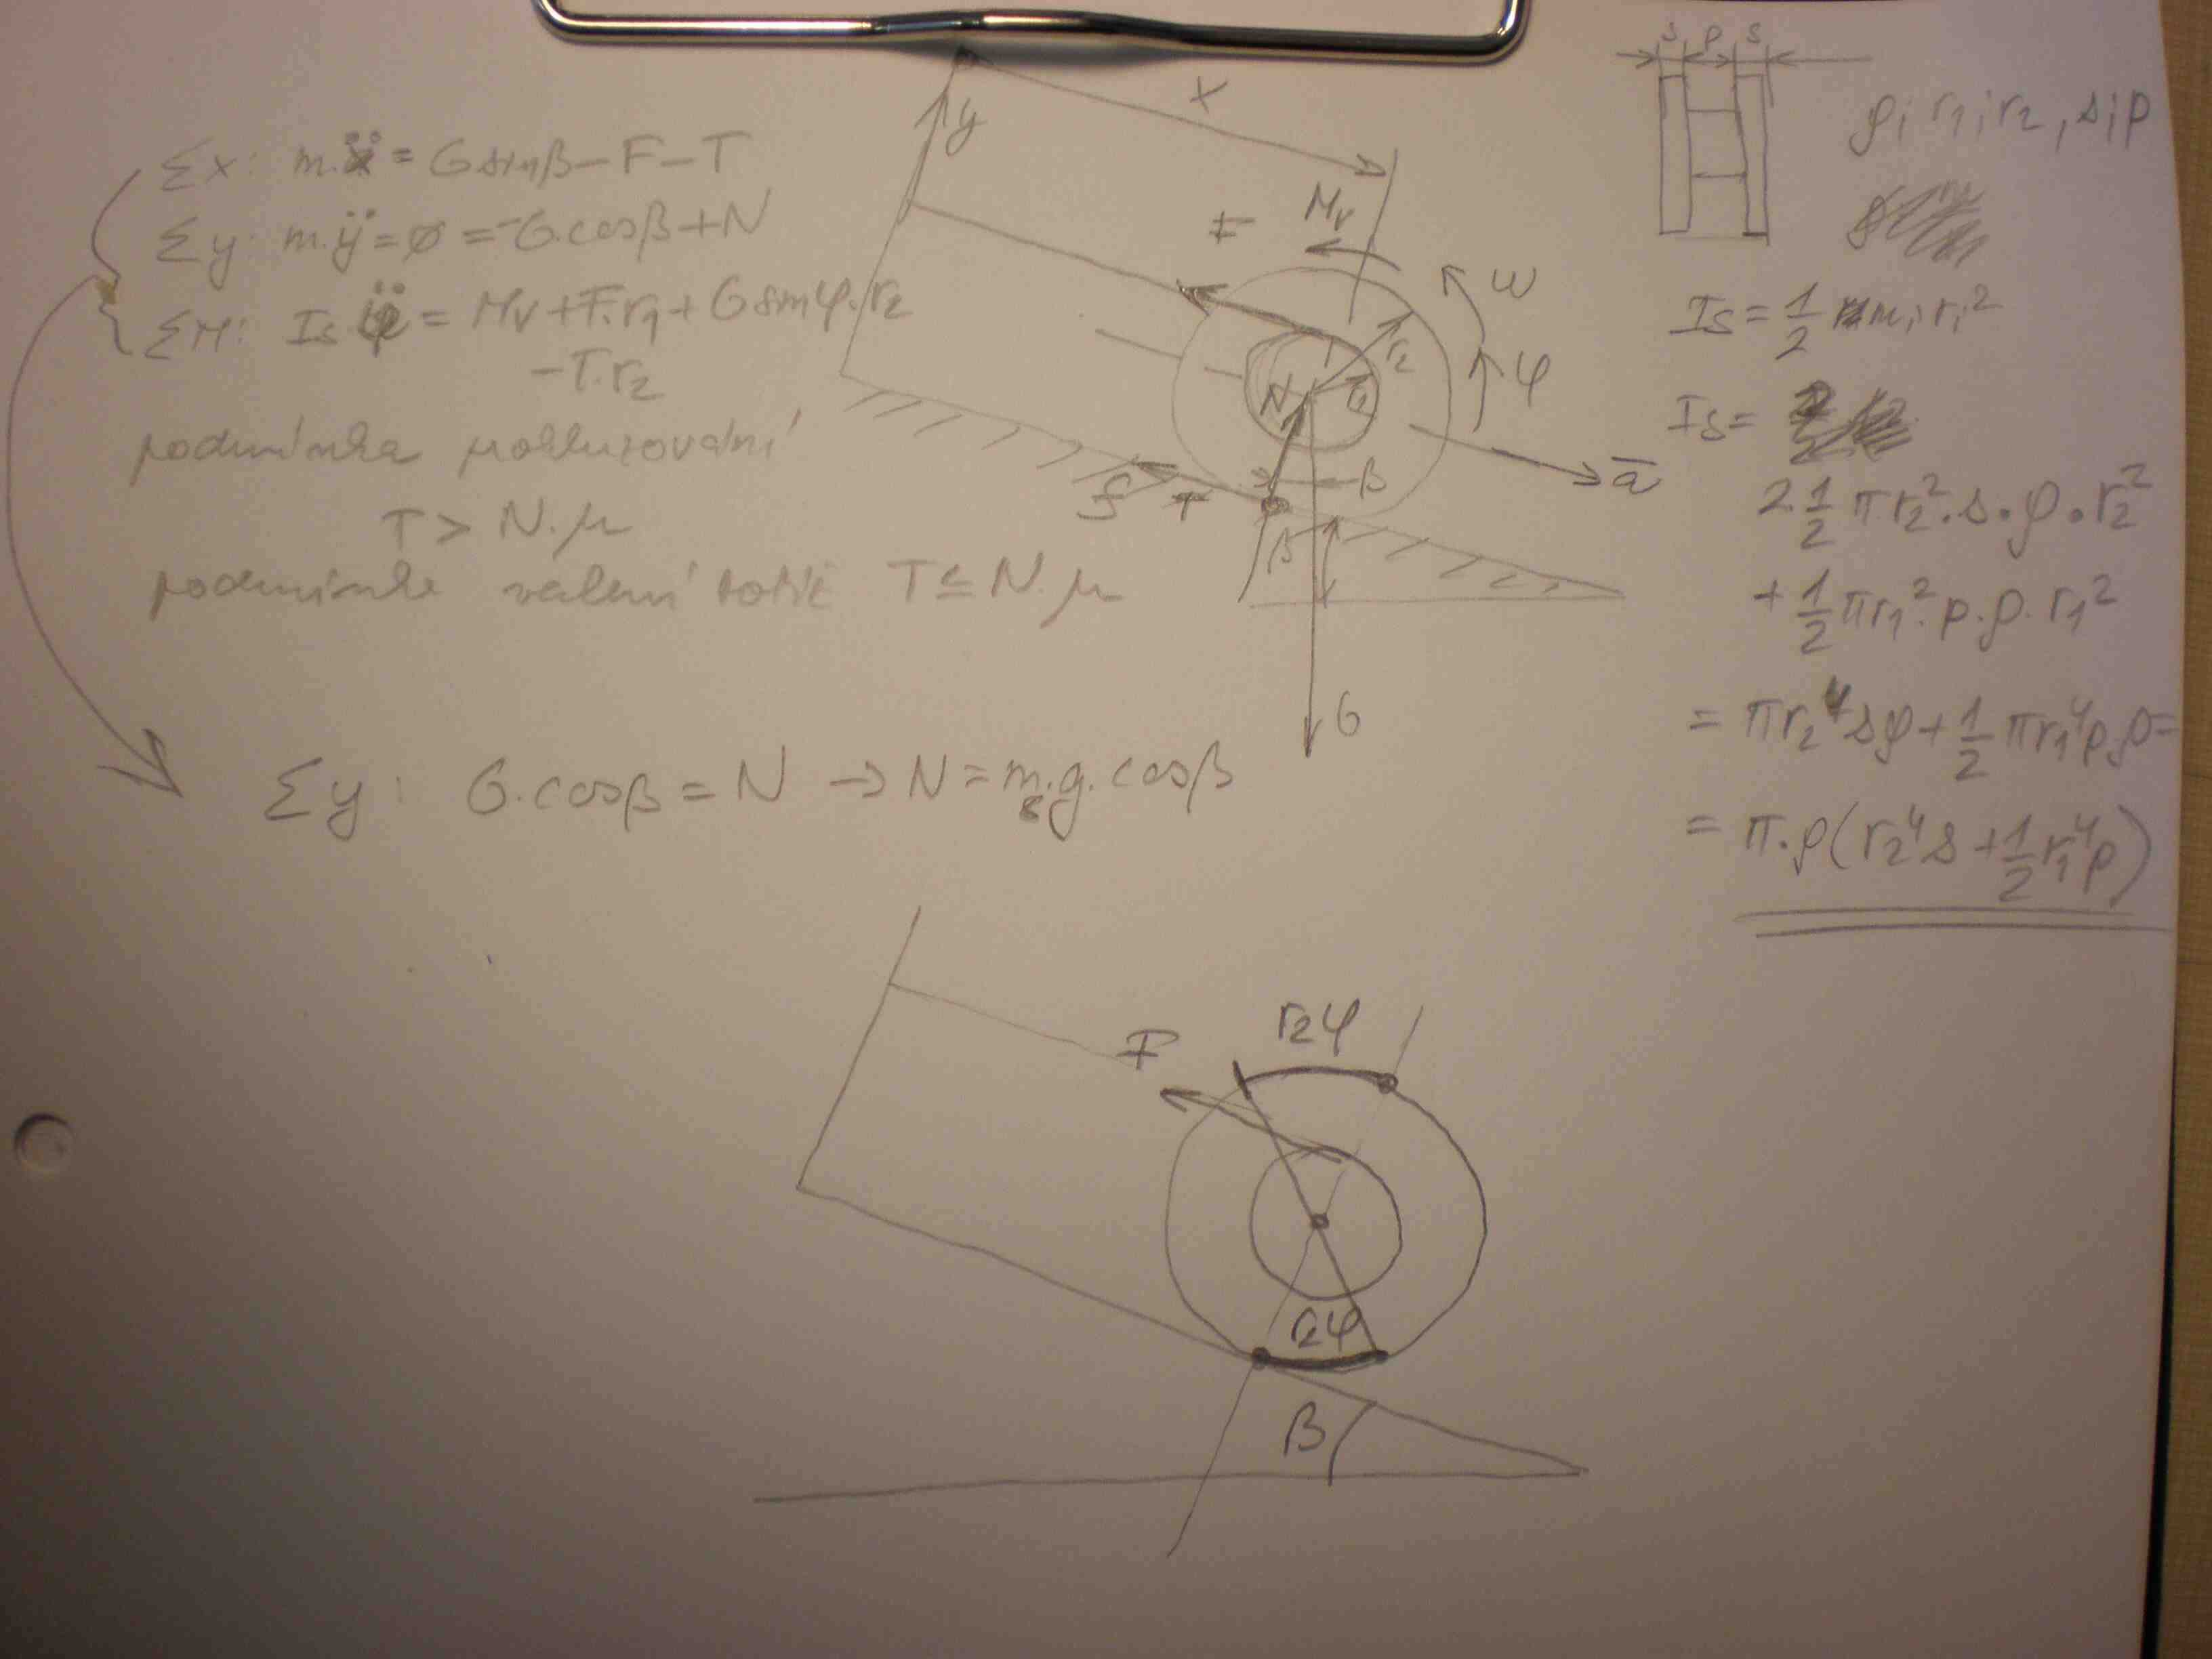 Σx: m.ẍ = G sinβ – F – T
Σy: m.ÿ = ø = -G.cosβ + N
ΣM: Is φ̈ = Mv + F.r₁ + G sinφ.r₂
– T.r₂
podmínka prokluzování
T > N.μ
podmínka valení totiž T ≤ N.μ
Σy: G.cosβ = N → N = m.g.cosβ
y
x
F
Mv
ω
φ
r₂
r₁
N
ā
f
T
β
β
G
s p s
ρ, r₁, r₂, s, p
Is = ½ mᵢ rᵢ²
Is =
2 ½ π r₂². s. ρ. r₂²
+ ½ π r₁². p. ρ. r₁²
= π r₂⁴ s ρ + ½ π r₁⁴ p ρ =
= π. ρ (r₂⁴ s + ½ r₁⁴ p)
r₂φ
F
r₂φ
β